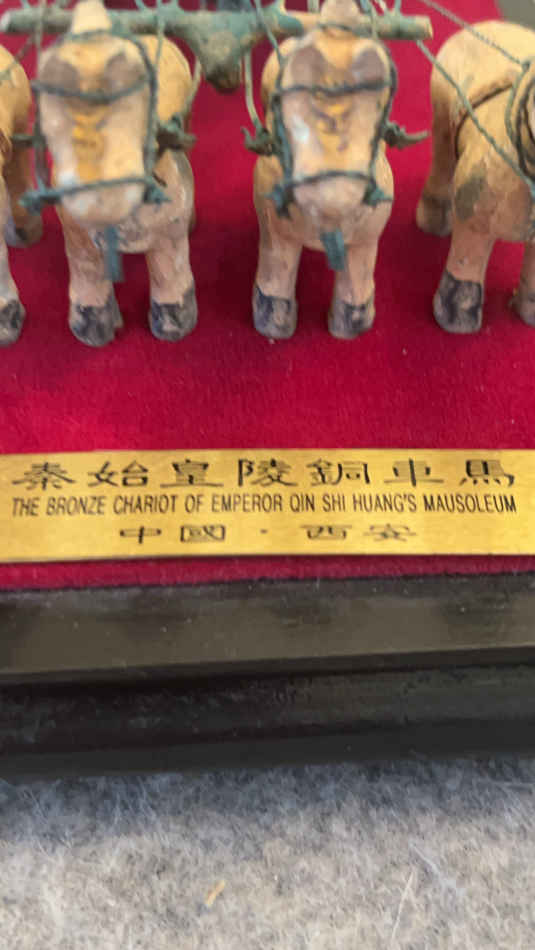 秦始皇陵銅車馬
THE BRONZE CHARIOT OF EMPEROR QIN SHI HUANG'S MAUSOLEUM
中國·西安